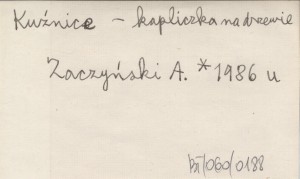 Kuźnice - kapliczka na drzewie
Zaczyński A. *1986 u
BT/060/0188